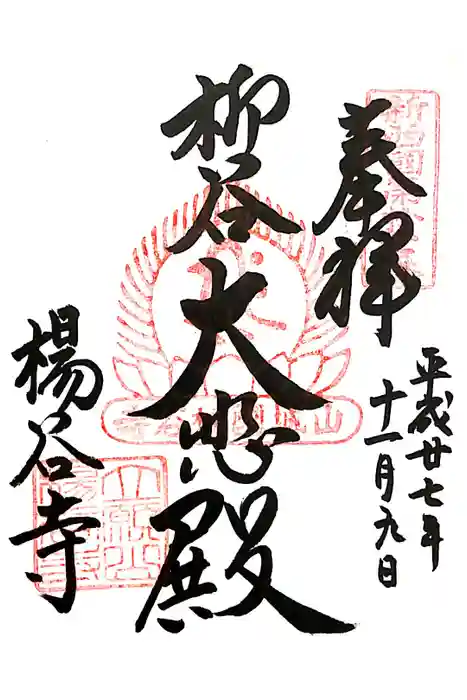 奉拝
平成廿七年
十一月九日
柳谷大悲殿
楊谷寺